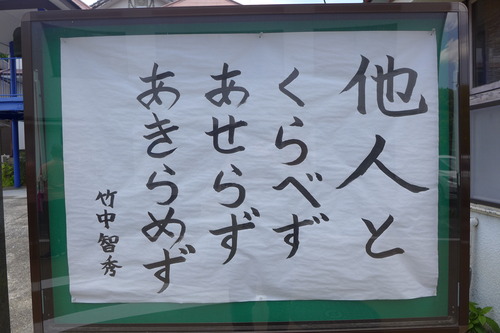 他人と
くらべず
あせらず
あきらめず
竹中智秀